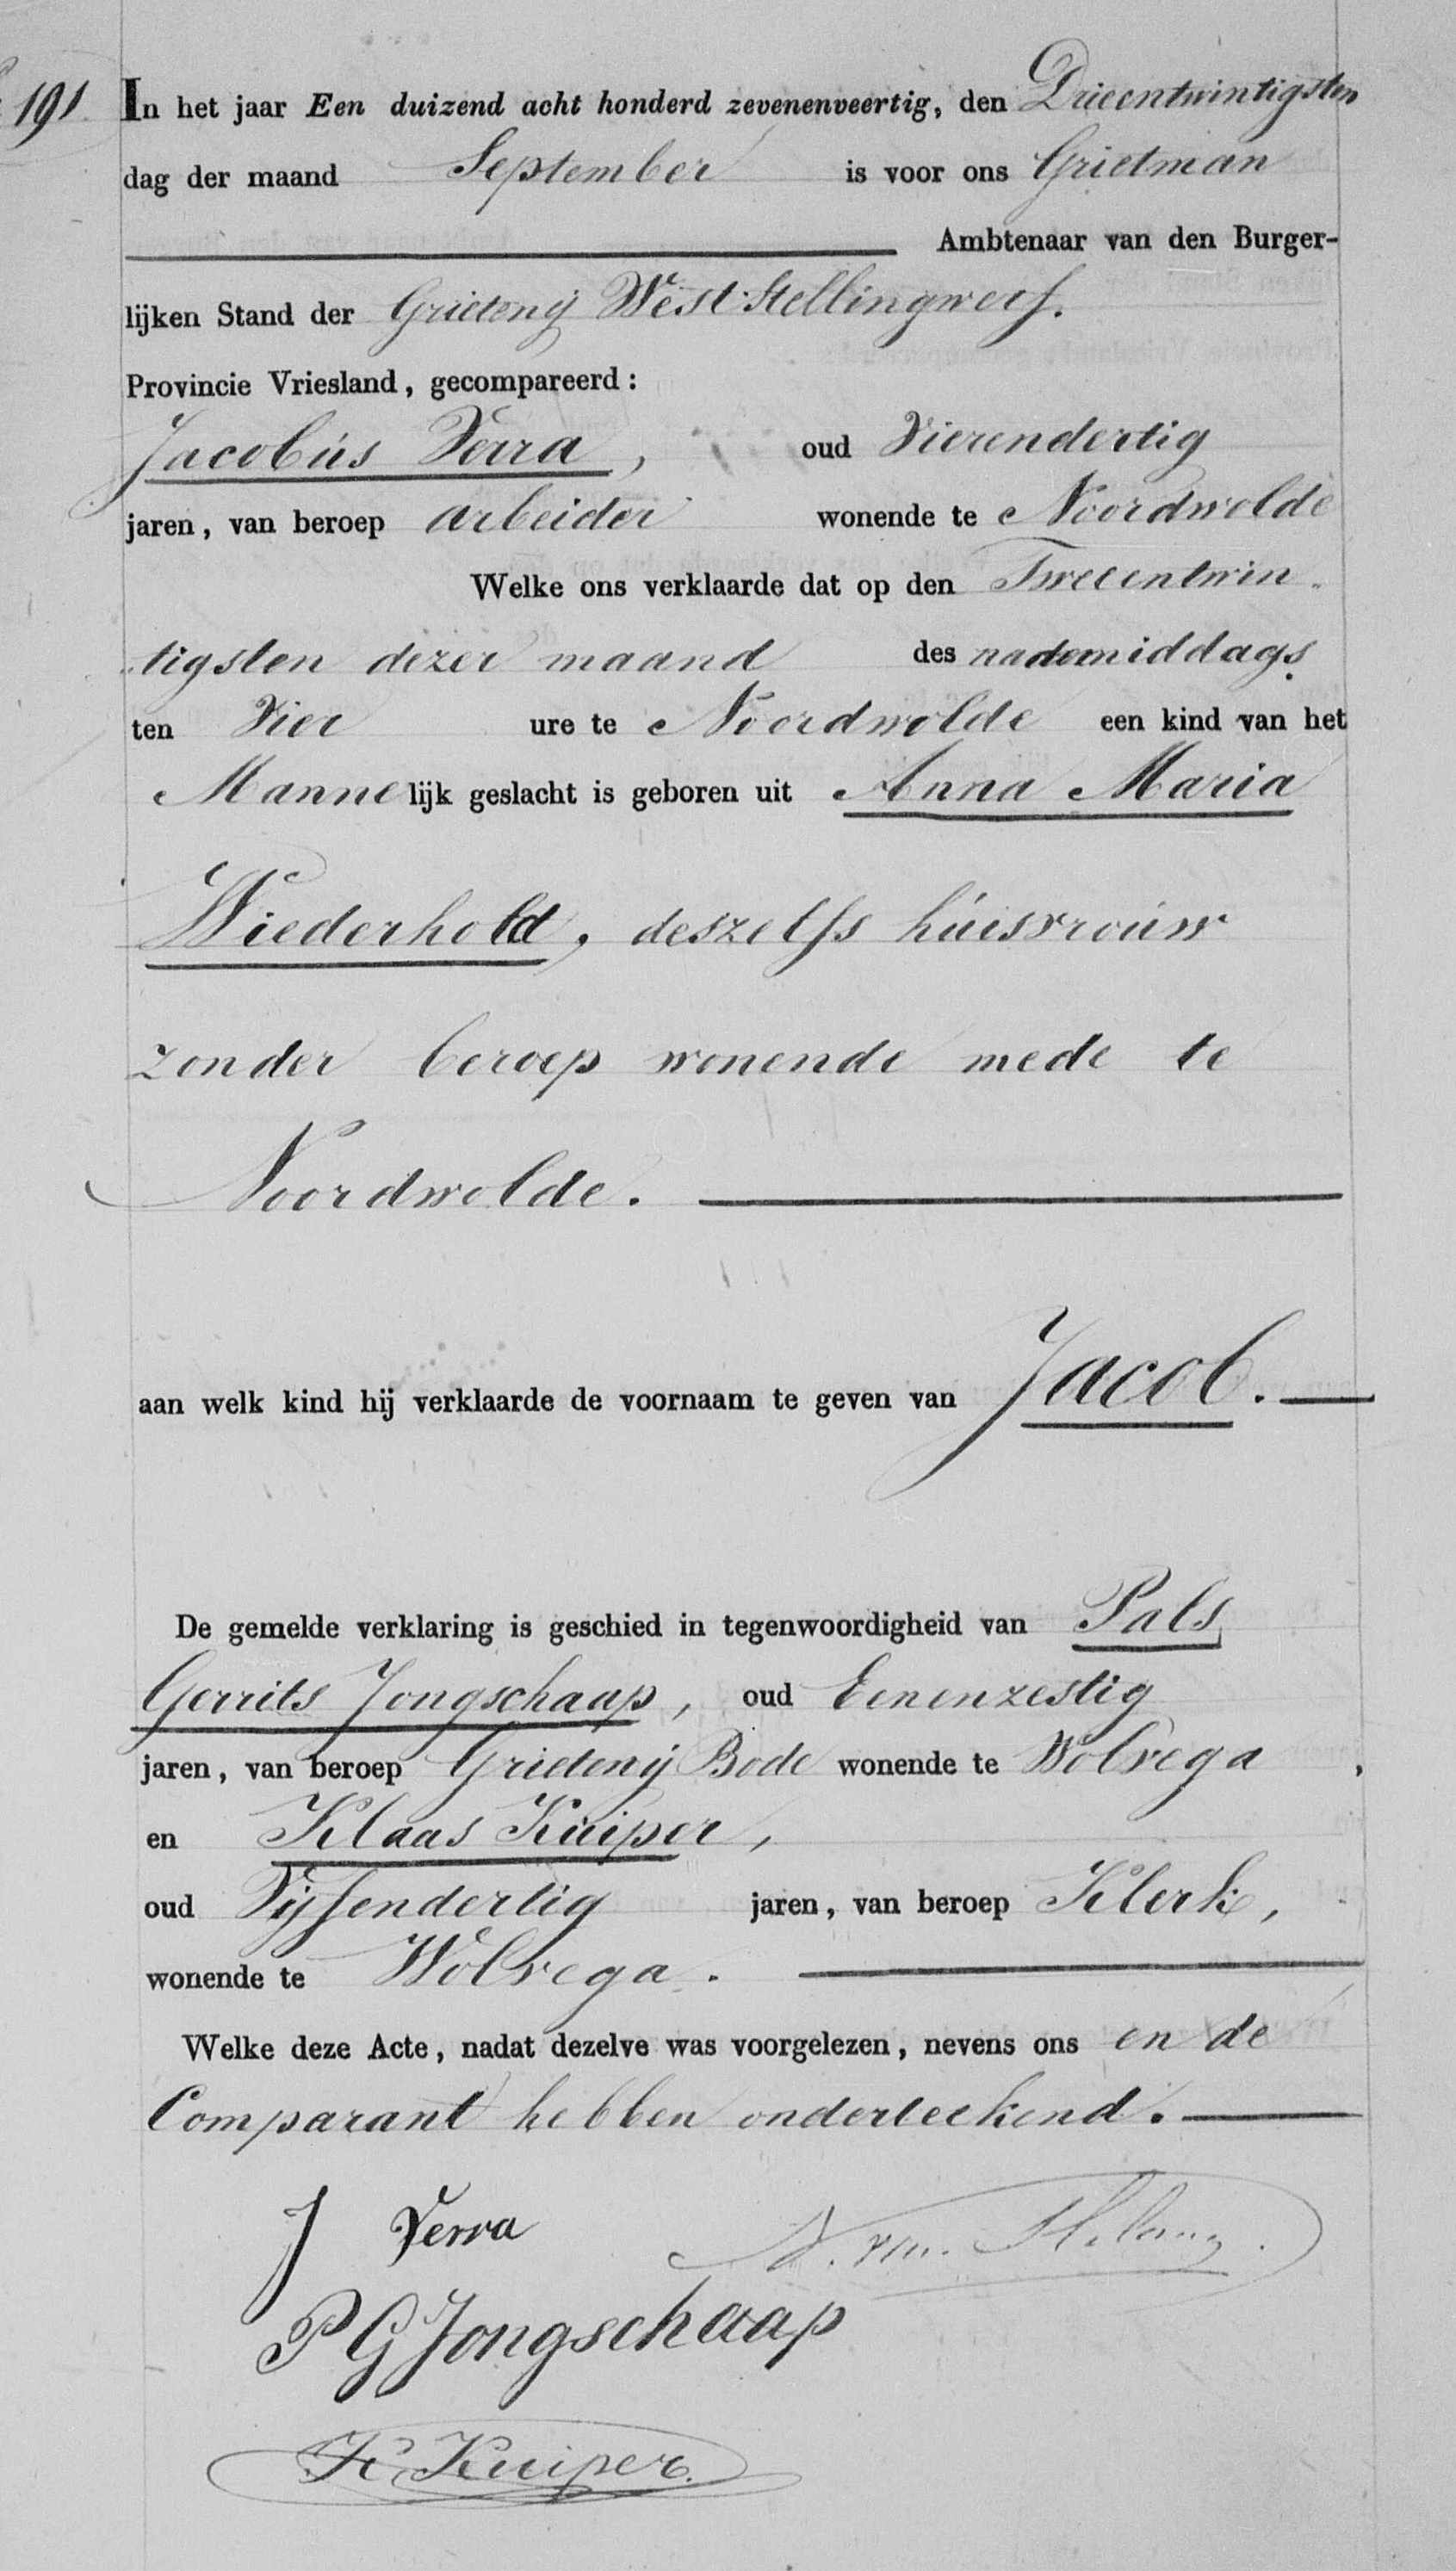 191
In het jaar Een duizend acht honderd zevenenveertig, den Drieentwintigsten
dag der maand September is voor ons Grietman
Ambtenaar van den Burger-
lijken Stand der Grietenij West Stellingwerf.
Provincie Vriesland, gecompareerd:
Jacobús Verra, oud Vierendertig
jaren, van beroep arbeider wonende te Noordwolde
Welke ons verklaarde dat op den Tweeentwin-
tigsten dezer maand des nademiddags
ten Vier ure te Noordwolde een kind van het
Mannelijk geslacht is geboren uit Anna Maria
Wiederhold, deszelfs húisvroúw
zonder beroep wonende mede te
Noordwolde.
aan welk kind hij verklaarde de voornaam te geven van Jacob.
De gemelde verklaring is geschied in tegenwoordigheid van Pals
Gerrits Jongschaap, oud Eenenzestig
jaren, van beroep Grietenij Bode wonende te Wolvega,
en Klaas Kuiper,
oud Vijfendertig jaren, van beroep Klerk,
wonende te Wolvega.
Welke deze Acte, nadat dezelve was voorgelezen, nevens ons en de
Comparant hebben onderteekend.
J Verra
P G Jongschaap
K Kuiper.